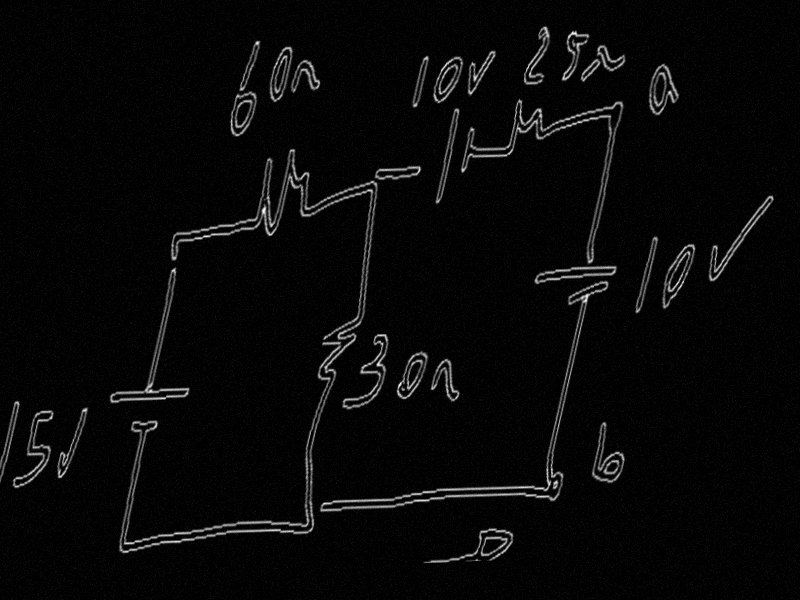 60Ω
10V 25Ω a
10V
30Ω
15V
b